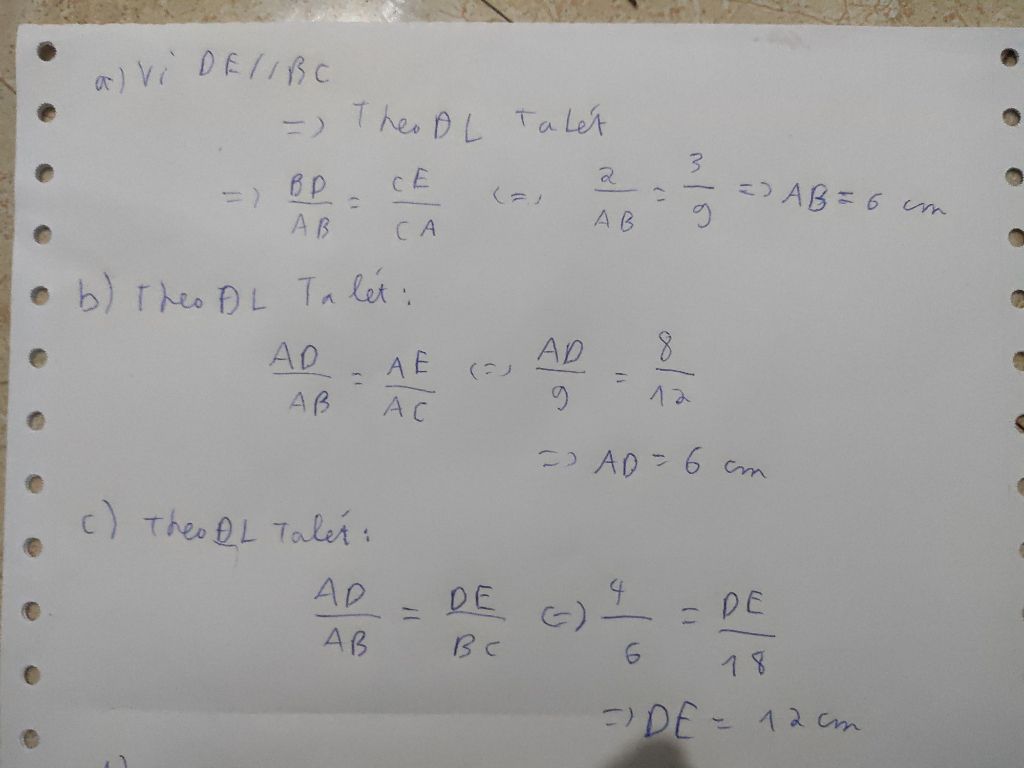 a) Vì DE//BC
=> Theo ĐL Talét
=> BD/AB = CE/CA <=> 2/AB = 3/9 => AB = 6 cm
b) Theo ĐL Talét:
AD/AB = AE/AC <=> AD/9 = 8/12
=> AD = 6 cm
c) Theo ĐL Talét:
AD/AB = DE/BC <=> 4/6 = DE/18
=> DE = 12 cm